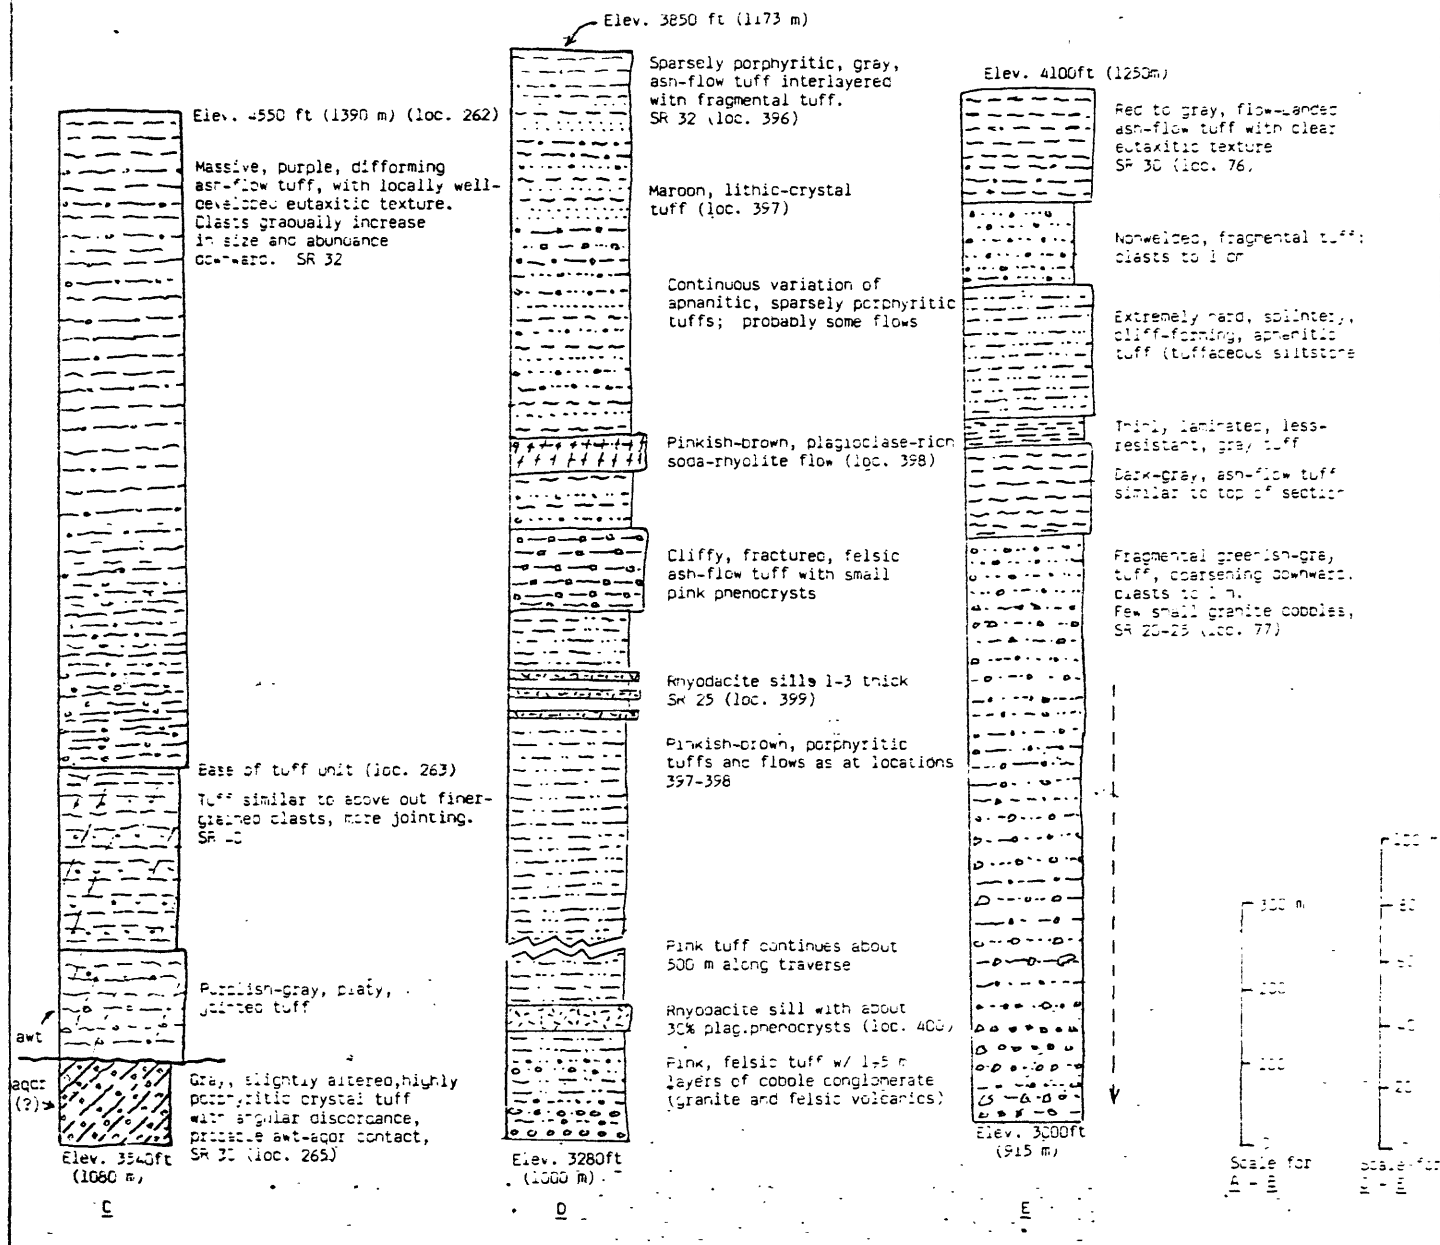 Elev. 4550 ft (1390 m) (loc. 262)
Massive, purple, difforming
ash-flow tuff, with locally well-
developed eutaxitic texture.
Clasts gradually increase
in size and abundance
downward. SR 32
Base of tuff unit (loc. 263)
Tuff similar to above but finer-
grained clasts, more jointing.
SR
Purplish-gray, platy,
jointed tuff
awt
aqcr
(?)
Gray, slightly altered, highly
porphyritic crystal tuff
with angular discordance,
probable awt-aqcr contact,
SR (loc. 265)
Elev. 3540ft
(1080 m)
C
Elev. 3850 ft (1173 m)
Sparsely porphyritic, gray,
ash-flow tuff interlayered
with fragmental tuff.
SR 32 (loc. 396)
Maroon, lithic-crystal
tuff (loc. 397)
Continuous variation of
aphanitic, sparsely porphyritic
tuffs; probably some flows
Pinkish-brown, plagioclase-rich
soda-rhyolite flow (loc. 398)
Cliffy, fractured, felsic
ash-flow tuff with small
pink phenocrysts
Rhyodacite sills 1-3 thick
SR 25 (loc. 399)
Pinkish-brown, porphyritic
tuffs and flows as at locations
397-398
Pink tuff continues about
500 m along traverse
Rhyodacite sill with about
30% plag. phenocrysts (loc. 400)
Pink, felsic tuff w/ 1-5 m
layers of cobble conglomerate
(granite and felsic volcanics)
Elev. 3280ft
(1000 m)
D
Elev. 4100ft (1250m)
Red to gray, flow-banded
ash-flow tuff with clear
eutaxitic texture
SR 30 (loc. 76)
Nonwelded, fragmental tuff;
clasts to 1 cm
Extremely hard, splintery,
cliff-forming, aphanitic
tuff (tuffaceous siltstone
Thinly laminated, less-
resistant, gray tuff
Dark-gray, ash-flow tuff
similar to top of section
Fragmental greenish-gray
tuff, coarsening downward.
clasts to 1 m.
Few small granite cobbles,
SR (loc. 77)
Elev. 3000ft
(915 m)
E
300 m
200
100
0
Scale for
A - B
100
80
60
40
20
0
Scale for
C - E